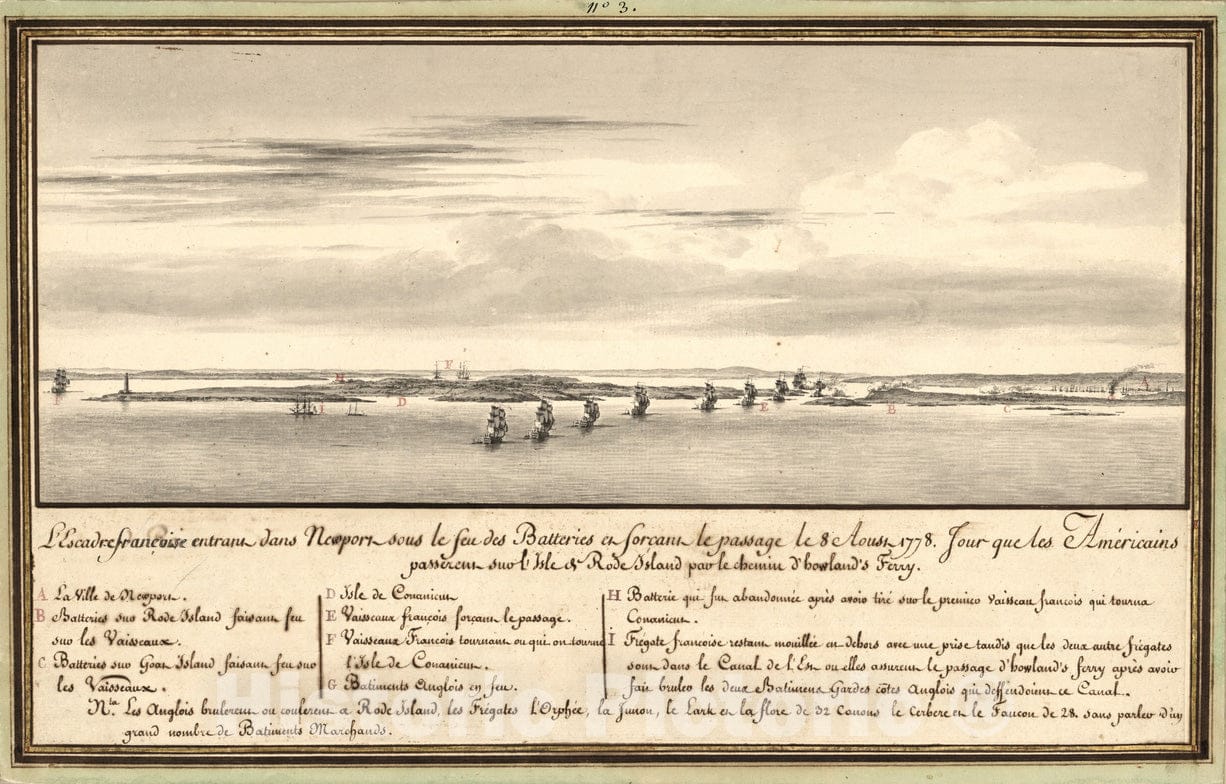 nº 3.
F
H
F
I
D
E
B
C
L'Escadre françoise entrant dans Newport sous le feu des Batteries et forcant le passage le 8 Aoust 1778. Jour que les Américains
passèrent sur l'Isle de Rode Island par le chemin d'howland's Ferry.
A La Ville de Newport.
B Batteries sur Rode Island faisant feu
sur les Vaisseaux.
C Batteries sur Goat Island faisant feu sur
les Vaisseaux.
D Isle de Conanicut.
E Vaisseaux françois forçant le passage.
F Vaisseaux François tournant ou qui ont tourné
l'Isle de Conanicut.
G Batiments Anglois en feu.
H Batterie qui fut abandonnée après avoir tiré sur le premier vaisseau francois qui tourna
Conanicut.
I Frégate francoise restant mouillée en dehors avec une prise tandis que les deux autre frégates
sont dans le Canal de l'Est ou elles assurent le passage d'howland's ferry après avoir
fait bruler les deux Batimens Gardes côtes Anglois qui deffendoient ce Canal.
Nta. Les Anglois brulerent ou coulerent a Rode Island, les Frégates l'Orphée, la Junon, le Lark et la flore de 32 Canons le Cerbere et le Faucon de 28. sans parler d'un
grand nombre de Batiments Marchands.